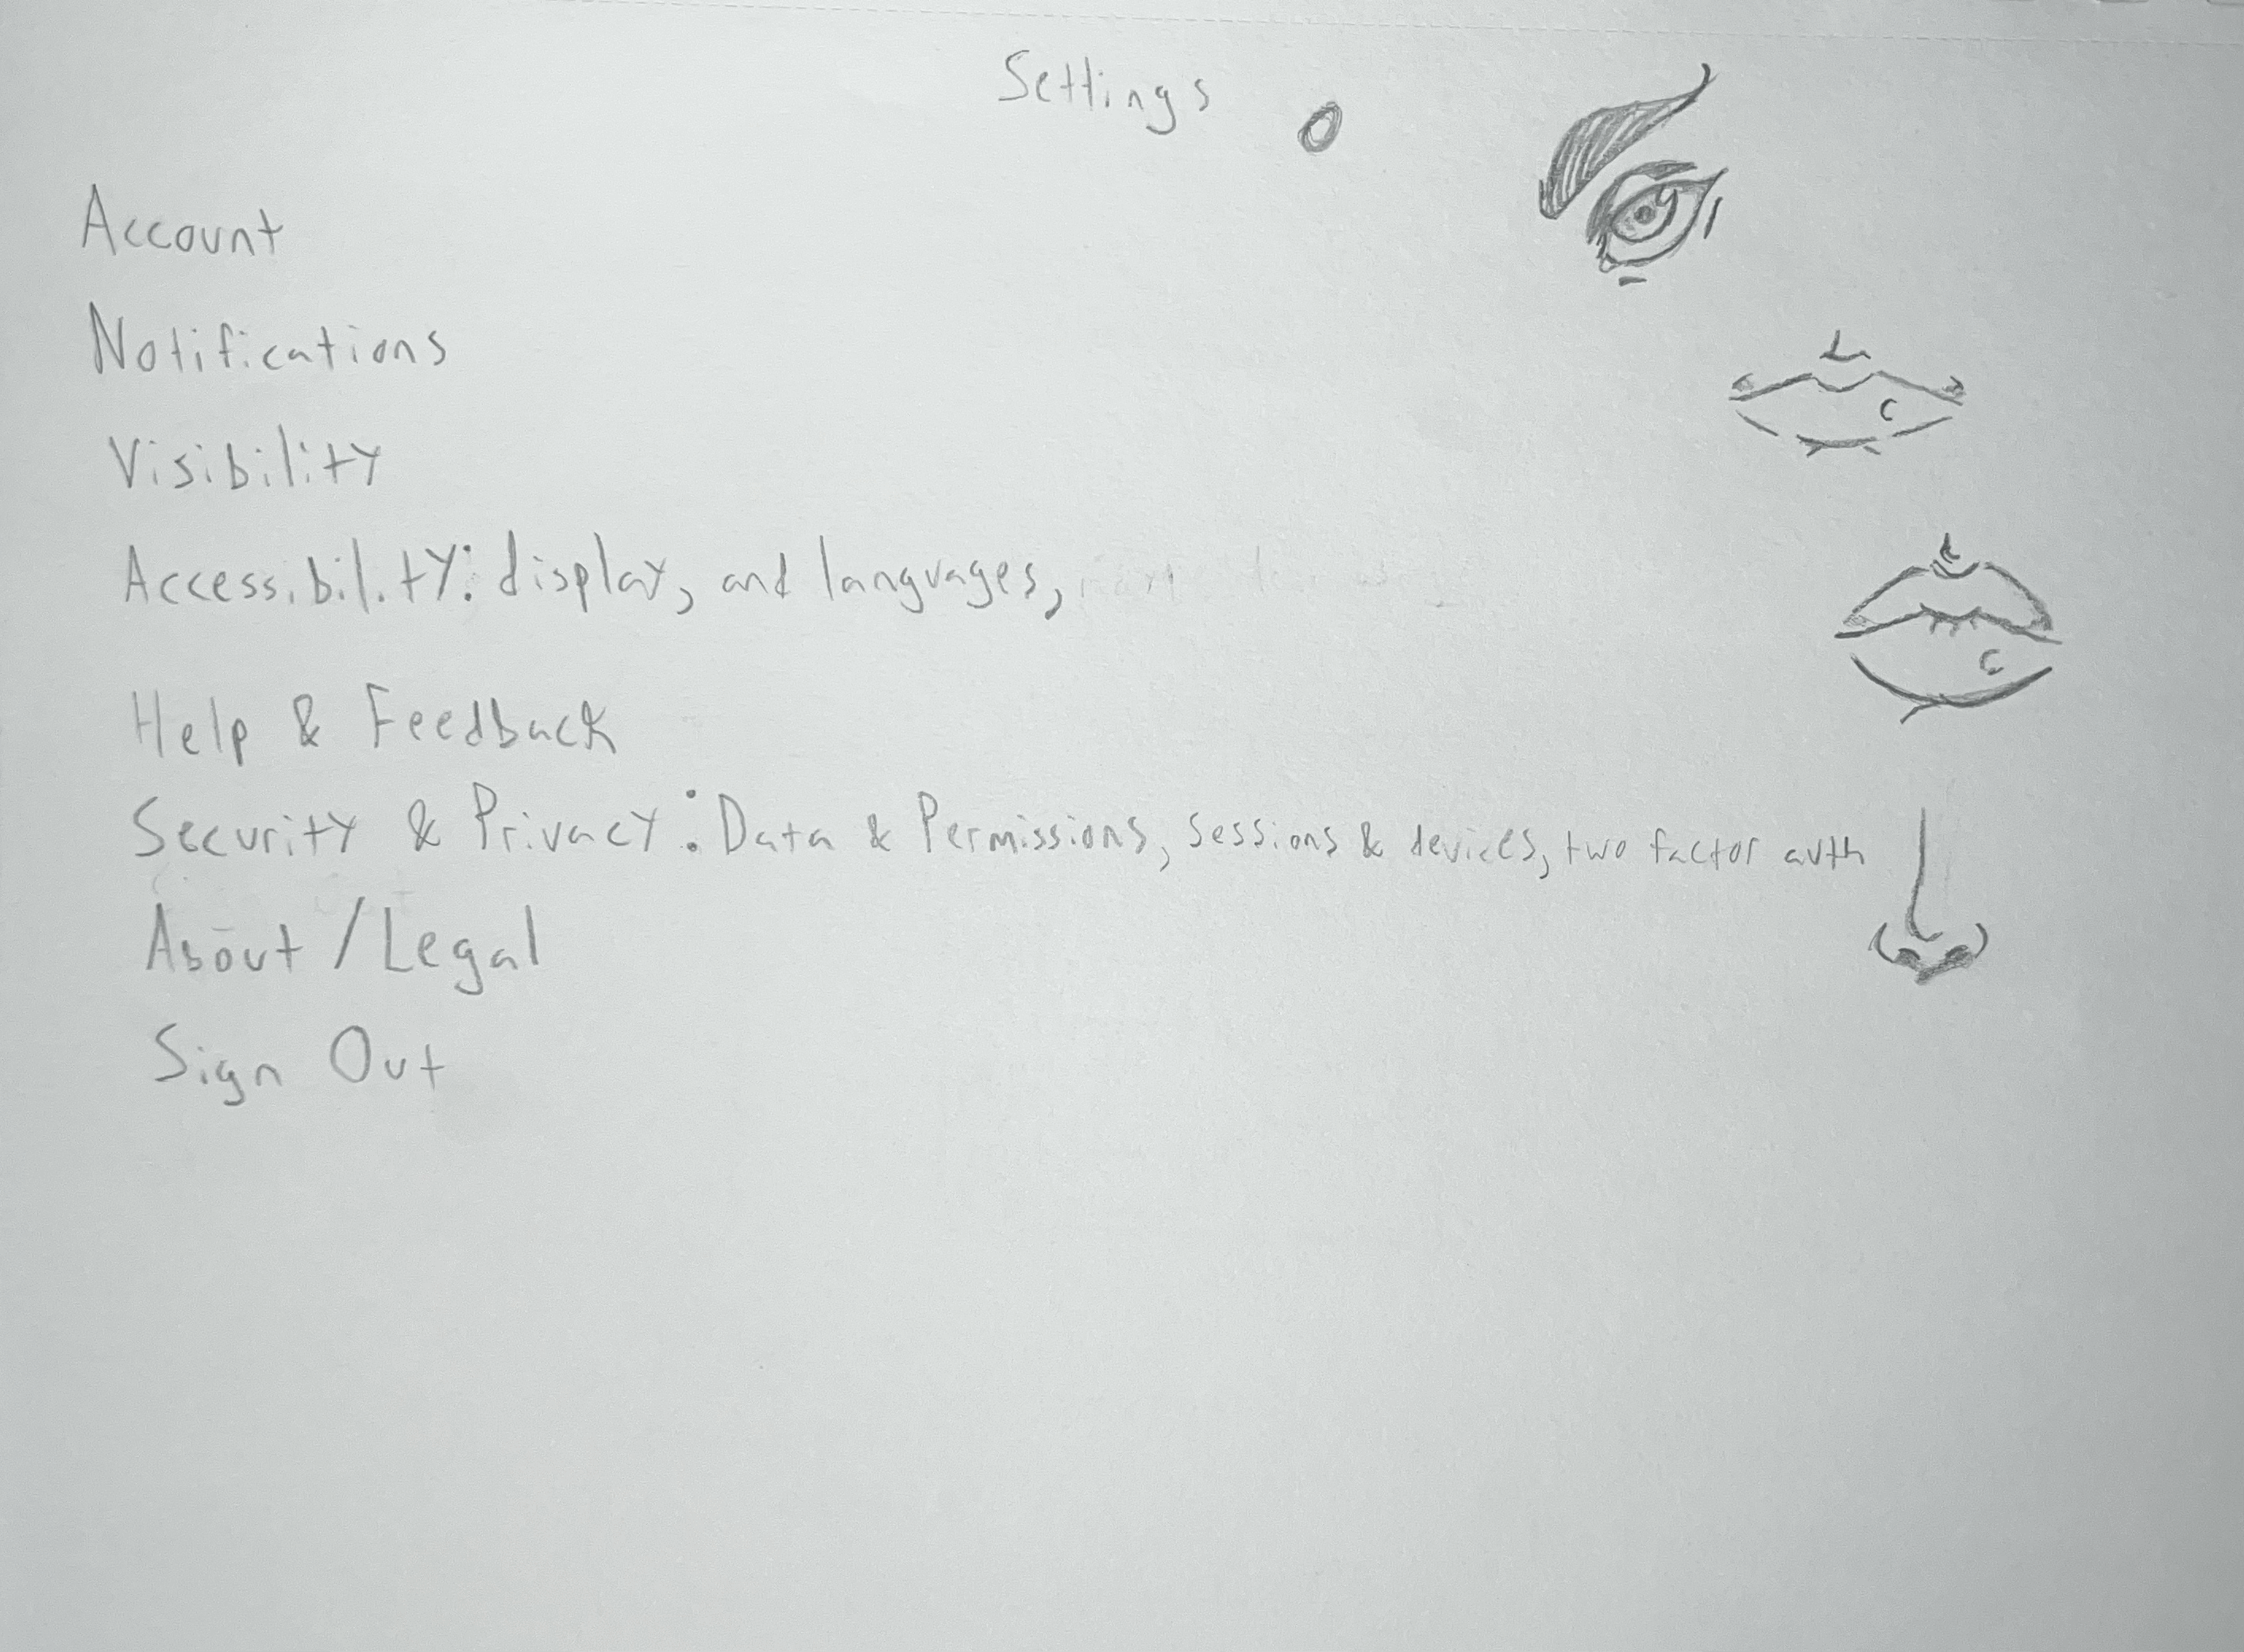 Settings
Account
Notifications
Visibility
Accessibility: display, and languages,
Help & Feedback
Security & Privacy: Data & Permissions, sessions & devices, two factor auth
About / Legal
Sign Out